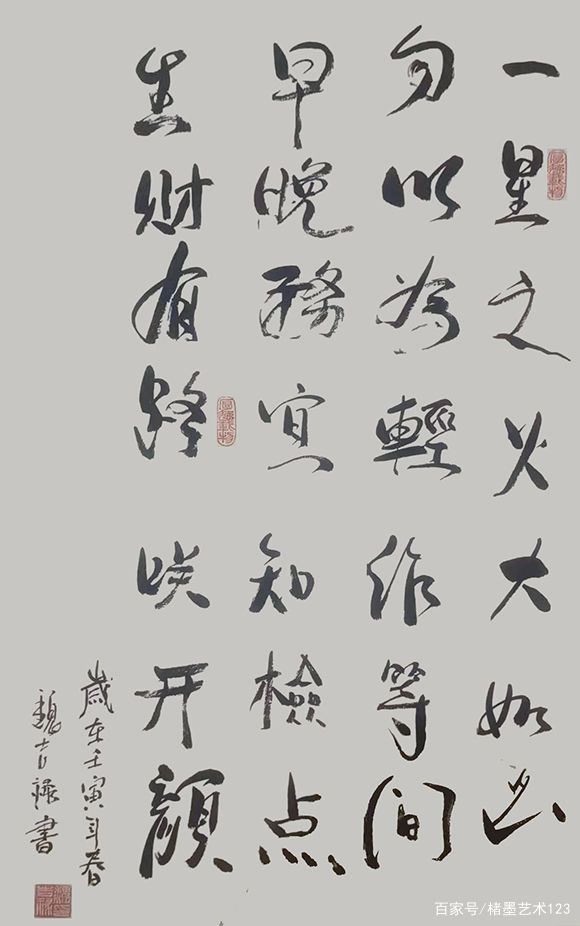 一星之火大如山
勿以為輕作等闲
早晚務宜知檢点
生财有路咲开顏
歲在壬寅年春
魏吉禄書
百家号/楮墨艺术123